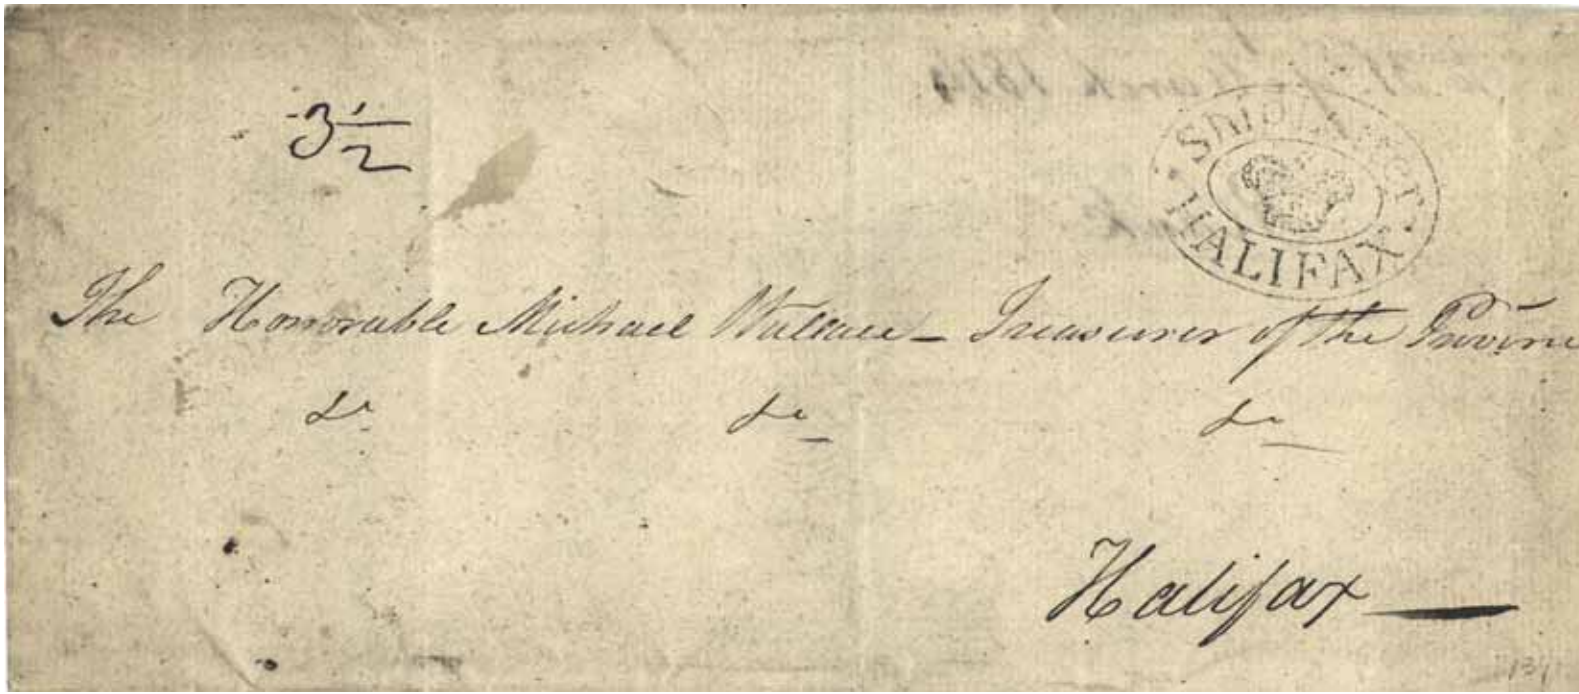 3 1/2
Ship Letter
HALIFAX
March 181
The Honorable Michael Wallace – Treasurer of the Province
&c &c &c
Halifax —